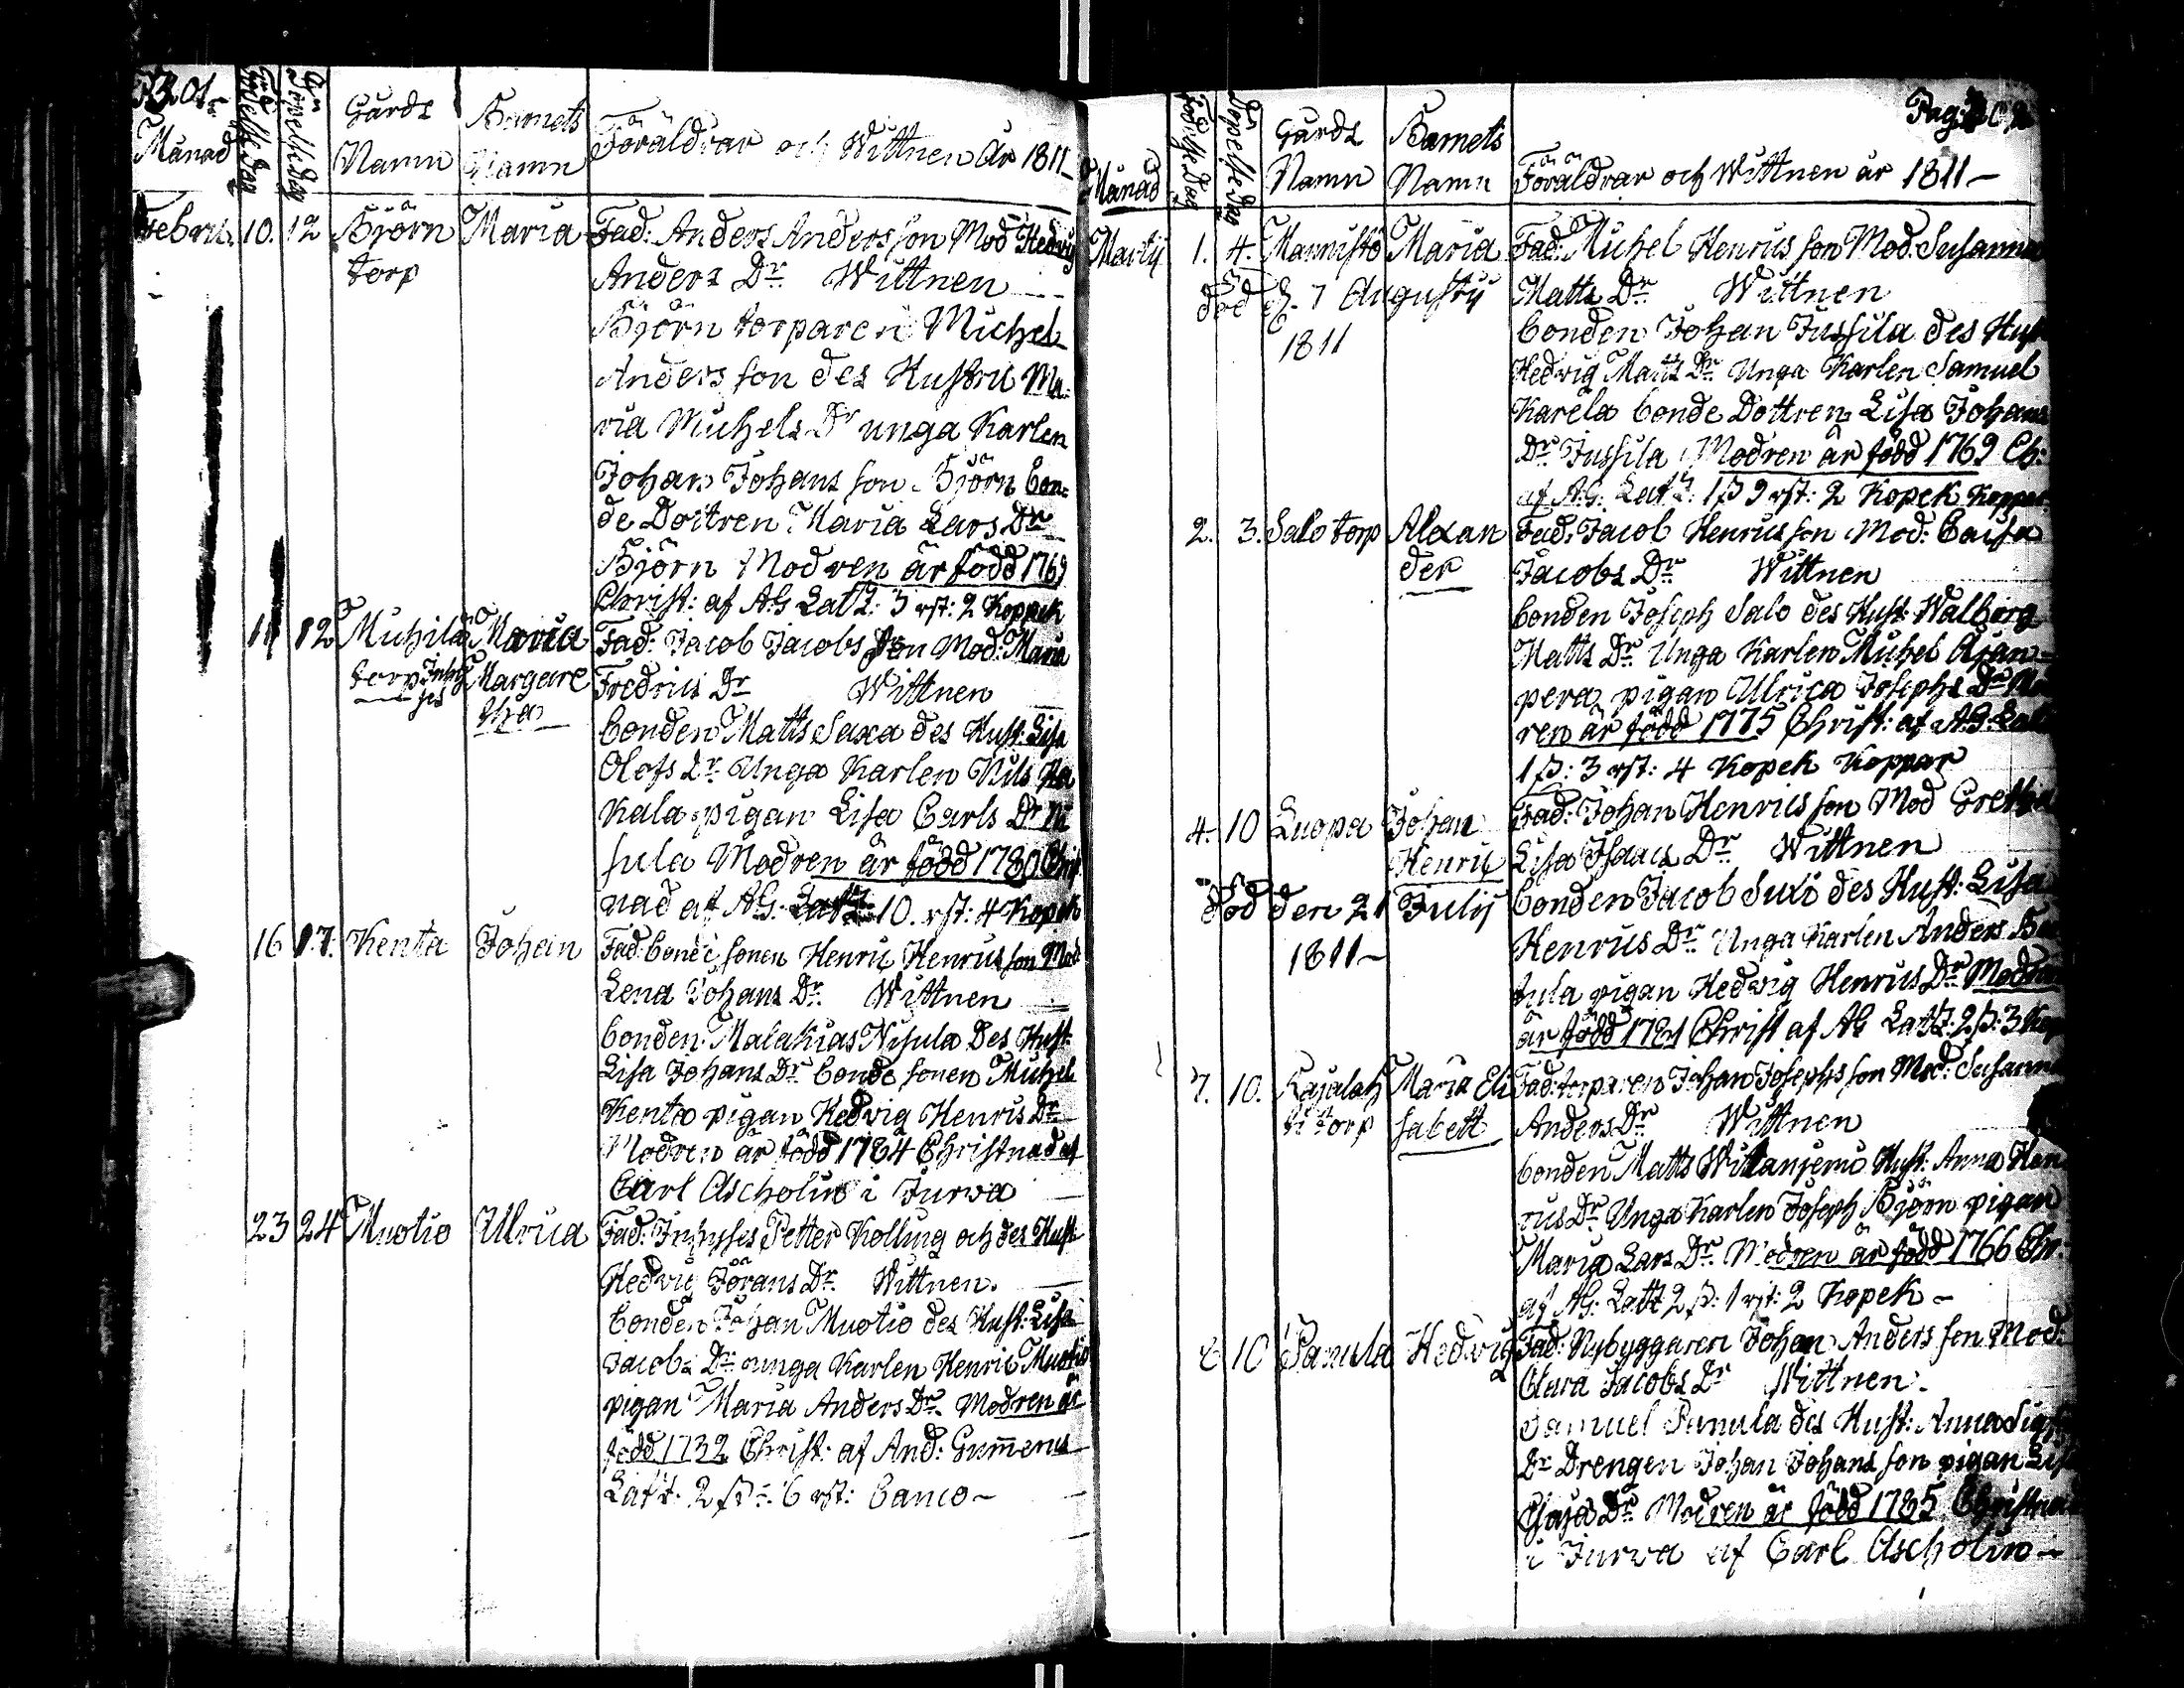 Månad
Födelse Dag
Döpelse Dag
Gårds
Namn
Barnets
Namn
Föräldrar och Wittnen År 1811
Febru. 10. 12 Björn Maria Fad: Anders Andersson Mod: Hedvig
torp Anders Dr Wittnen
Björn torparen Michel
Andersson des Hustru Ma-
ria Michels Dr unga Karlen
Johan Johansson Björn bon-
de Dottren Maria Lars Dr
Björn Modren är född 1769
Christ: af AG Latt: 5 rst: 2 Koppek
11 12 Michila Maria Fad: Jacob Jacobsson Mod: Maria
torp Margare Fredrics Dr Wittnen
tha
bonden Matts Saxa des Hust: Lisa
Olofs Dr Unga Karlen Nils
Kala pigan Lisa Carls Dr Ni
sula Modren är född 1780 Christ
nad af AG: Latt 10. rst: 4 Kopek
16 17. Kenta Johan Fad: bonde sonen Henric Henricsson Mod
Lena Johans Dr. Wittnen
bonden Malakias Nisula Des Hust:
Lisa Johans Dr bonde sonen Michel
Kenta pigan Hedvig Henrics Dr
Modren är född 1784 Christnad af
Carl Ascholin i Jurva
23 24 Muotio Ulrica Fad: Inhyses Petter Kolling och des Hust
Hedvig Jörans Dr. Wittnen.
bonden Johan Muotio des Hust: Lisa
Jacobs Dr unga Karlen Henric Muotio
pigan Maria Anders Dr. Modren är
född 1732 Christ: af And: Gummerus
Latt: 2 ß: 6 rst: banco
Pag:
Månad
Födelse Dag
Döpelse Dag
Gårds
Namn
Barnets
Namn
Föräldrar och Wittnen år 1811
Martij 1. 4. Mannistö Maria Fad: Michel Henricsson Mod: Susanna
död d. 7 Augustij Matts Dr Wittnen
1811 bonden Johan Jussila des Hust
Hedvig Matts Dr Unga Karlen Samuel
Karela bonde Dottren Lisa Johans
Dr Jussila Modren är född 1769 Ch:
af AG: Latt: 1 ß 9 rst: 2 Kopek Koppar
2. 3. Salo torp Alexan Fad: Jacob Henricsson Mod: Caisa
der Jacobs Dr Wittnen
bonden Joseph Salo des Hust: Walborg
Matts Dr Unga Karlen Michel Äjän-
pera pigan Ulrica Josephs Dr Mo
ren är född 1775 Christ: af AG: Latt
1 ß: 3 rst: 4 Kopek Koppar
4. 10 Luopa Johan Fad: Johan Henricsson Mod Gretha
Henric Lisa Isaacs Dr. Wittnen
död den 21 Julij bonden Jacob Luxi des Hust: Lisa
1811 Henrics Dr. Unga Karlen Anders
tula pigan Hedvig Henrics Dr Modren
är född 1781 Christ af AG Latt: 2 ß: 3 Kop
7. 10. Kajalah Maria Eli Fad: torparen Johan Josephsson Mod: Susanna
ti torp sabett Anders Dr Wittnen
bonden Matts Wittaniemi Hust: Anna Hen
rics Dr. Unga Karlen Joseph Björn pigan
Maria Lars Dr. Modren är född 1766 Chr.
af AG: Latt 2 ß: 1 rst: 2 Kopek
8 10 Panula Hedvig Fad: Nybyggaren Johan Andersson Mod:
Clara Jacobs Dr Wittnen.
Samuel Panula des Hust: Anna Sigf
Dr Drengen Johan Johansson pigan Lisa
Esaja Dr. Modren är född 1785 Christnad
i Jurva af Carl Ascholin